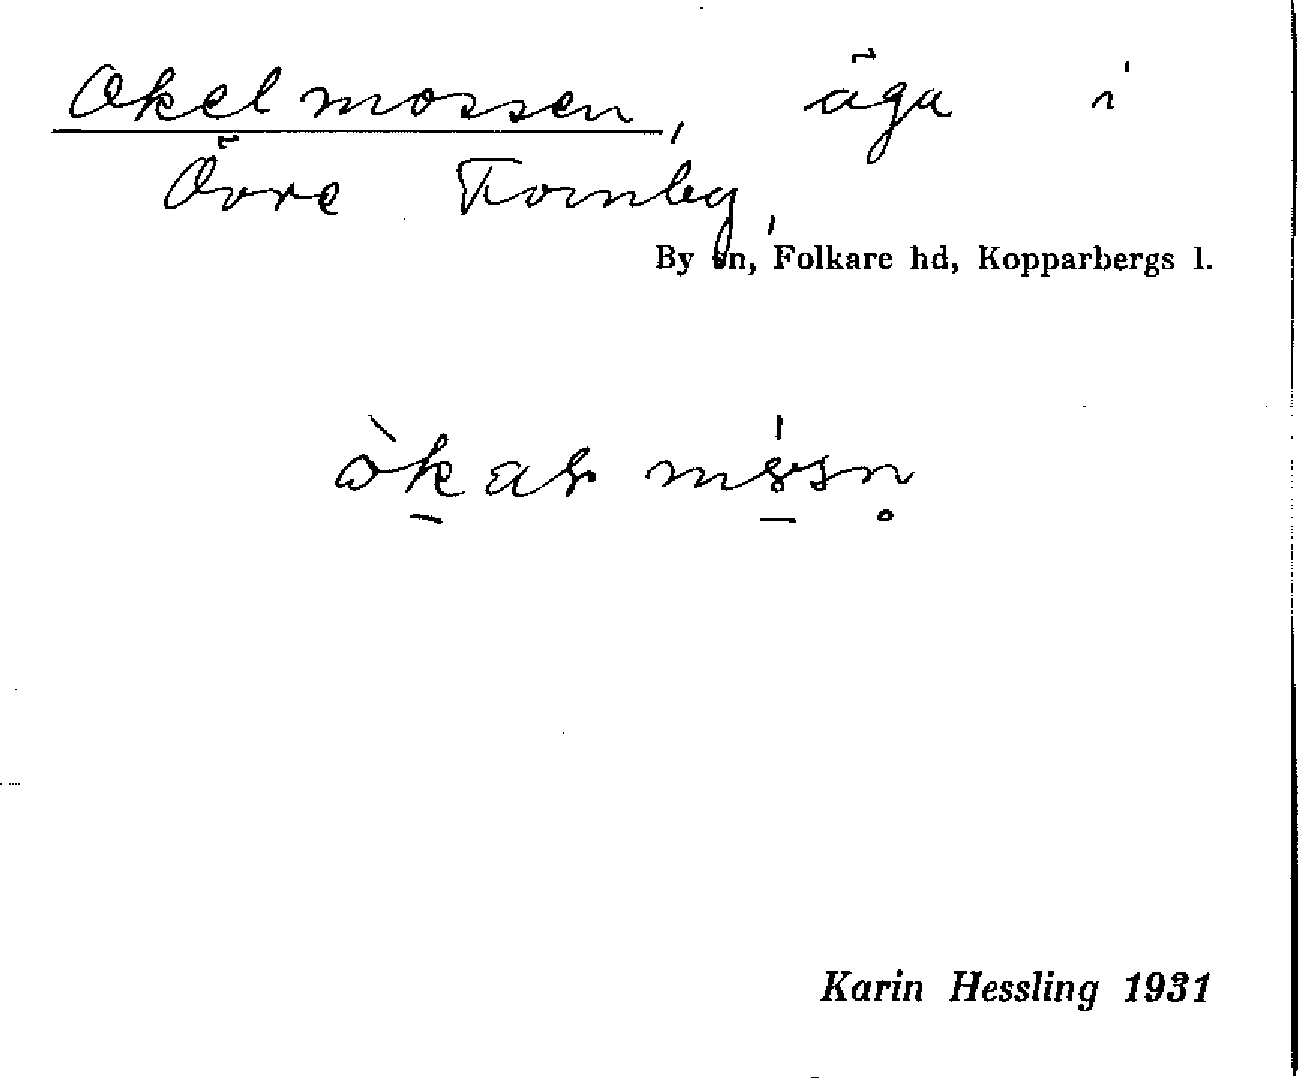 Okelmossen, äga i
Övre Fornby,
By sn, Folkare hd, Kopparbergs l.
Karin Hessling 1931